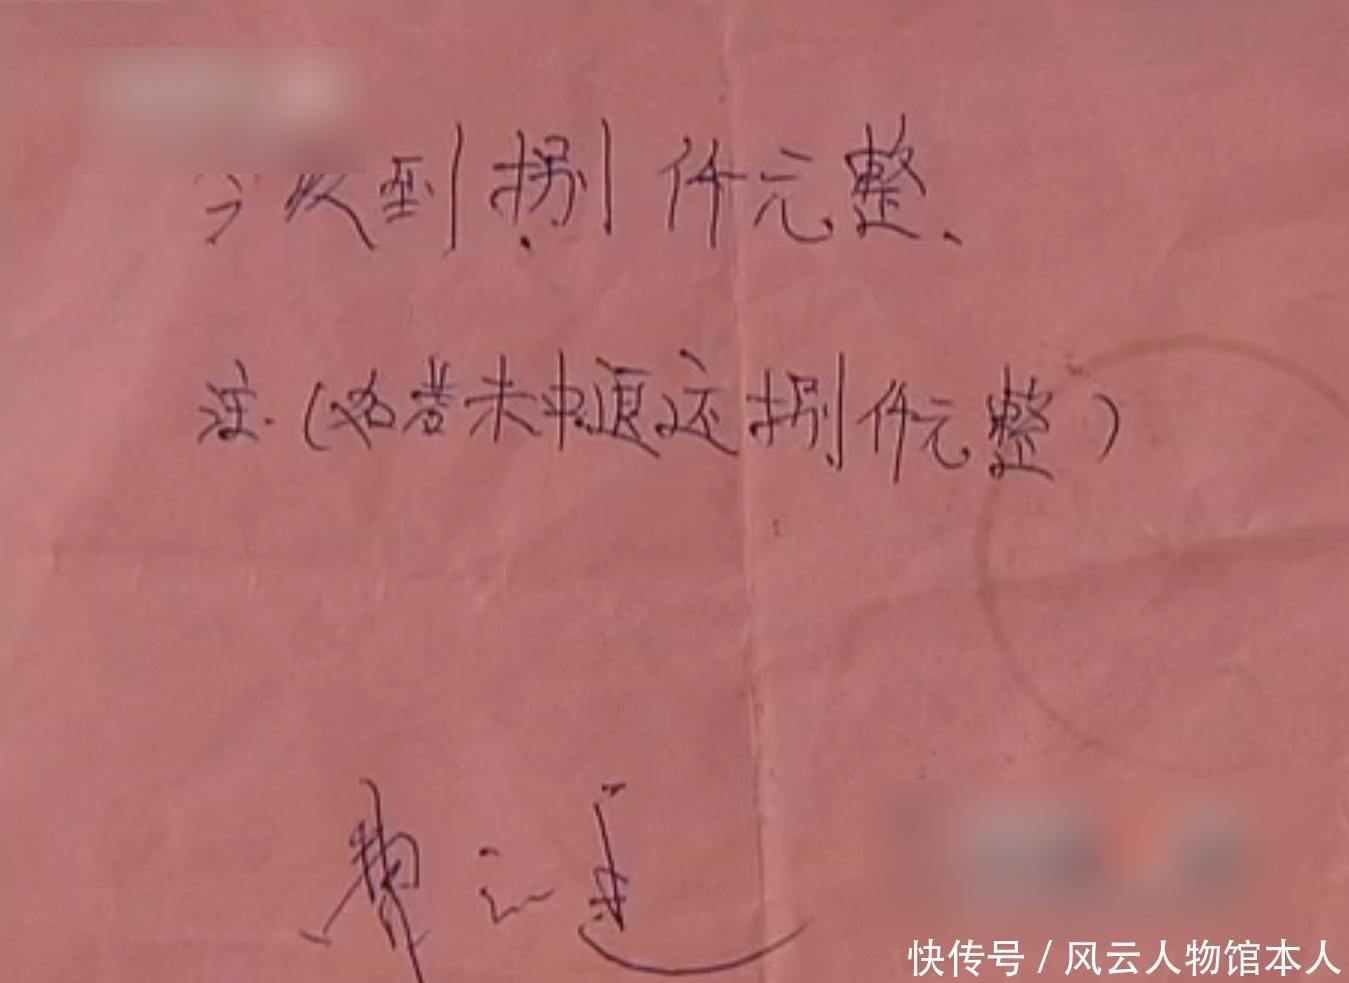 今收到捌仟元整、
注.(如若未中退还捌仟元整)
费之
快传号/风云人物馆本人